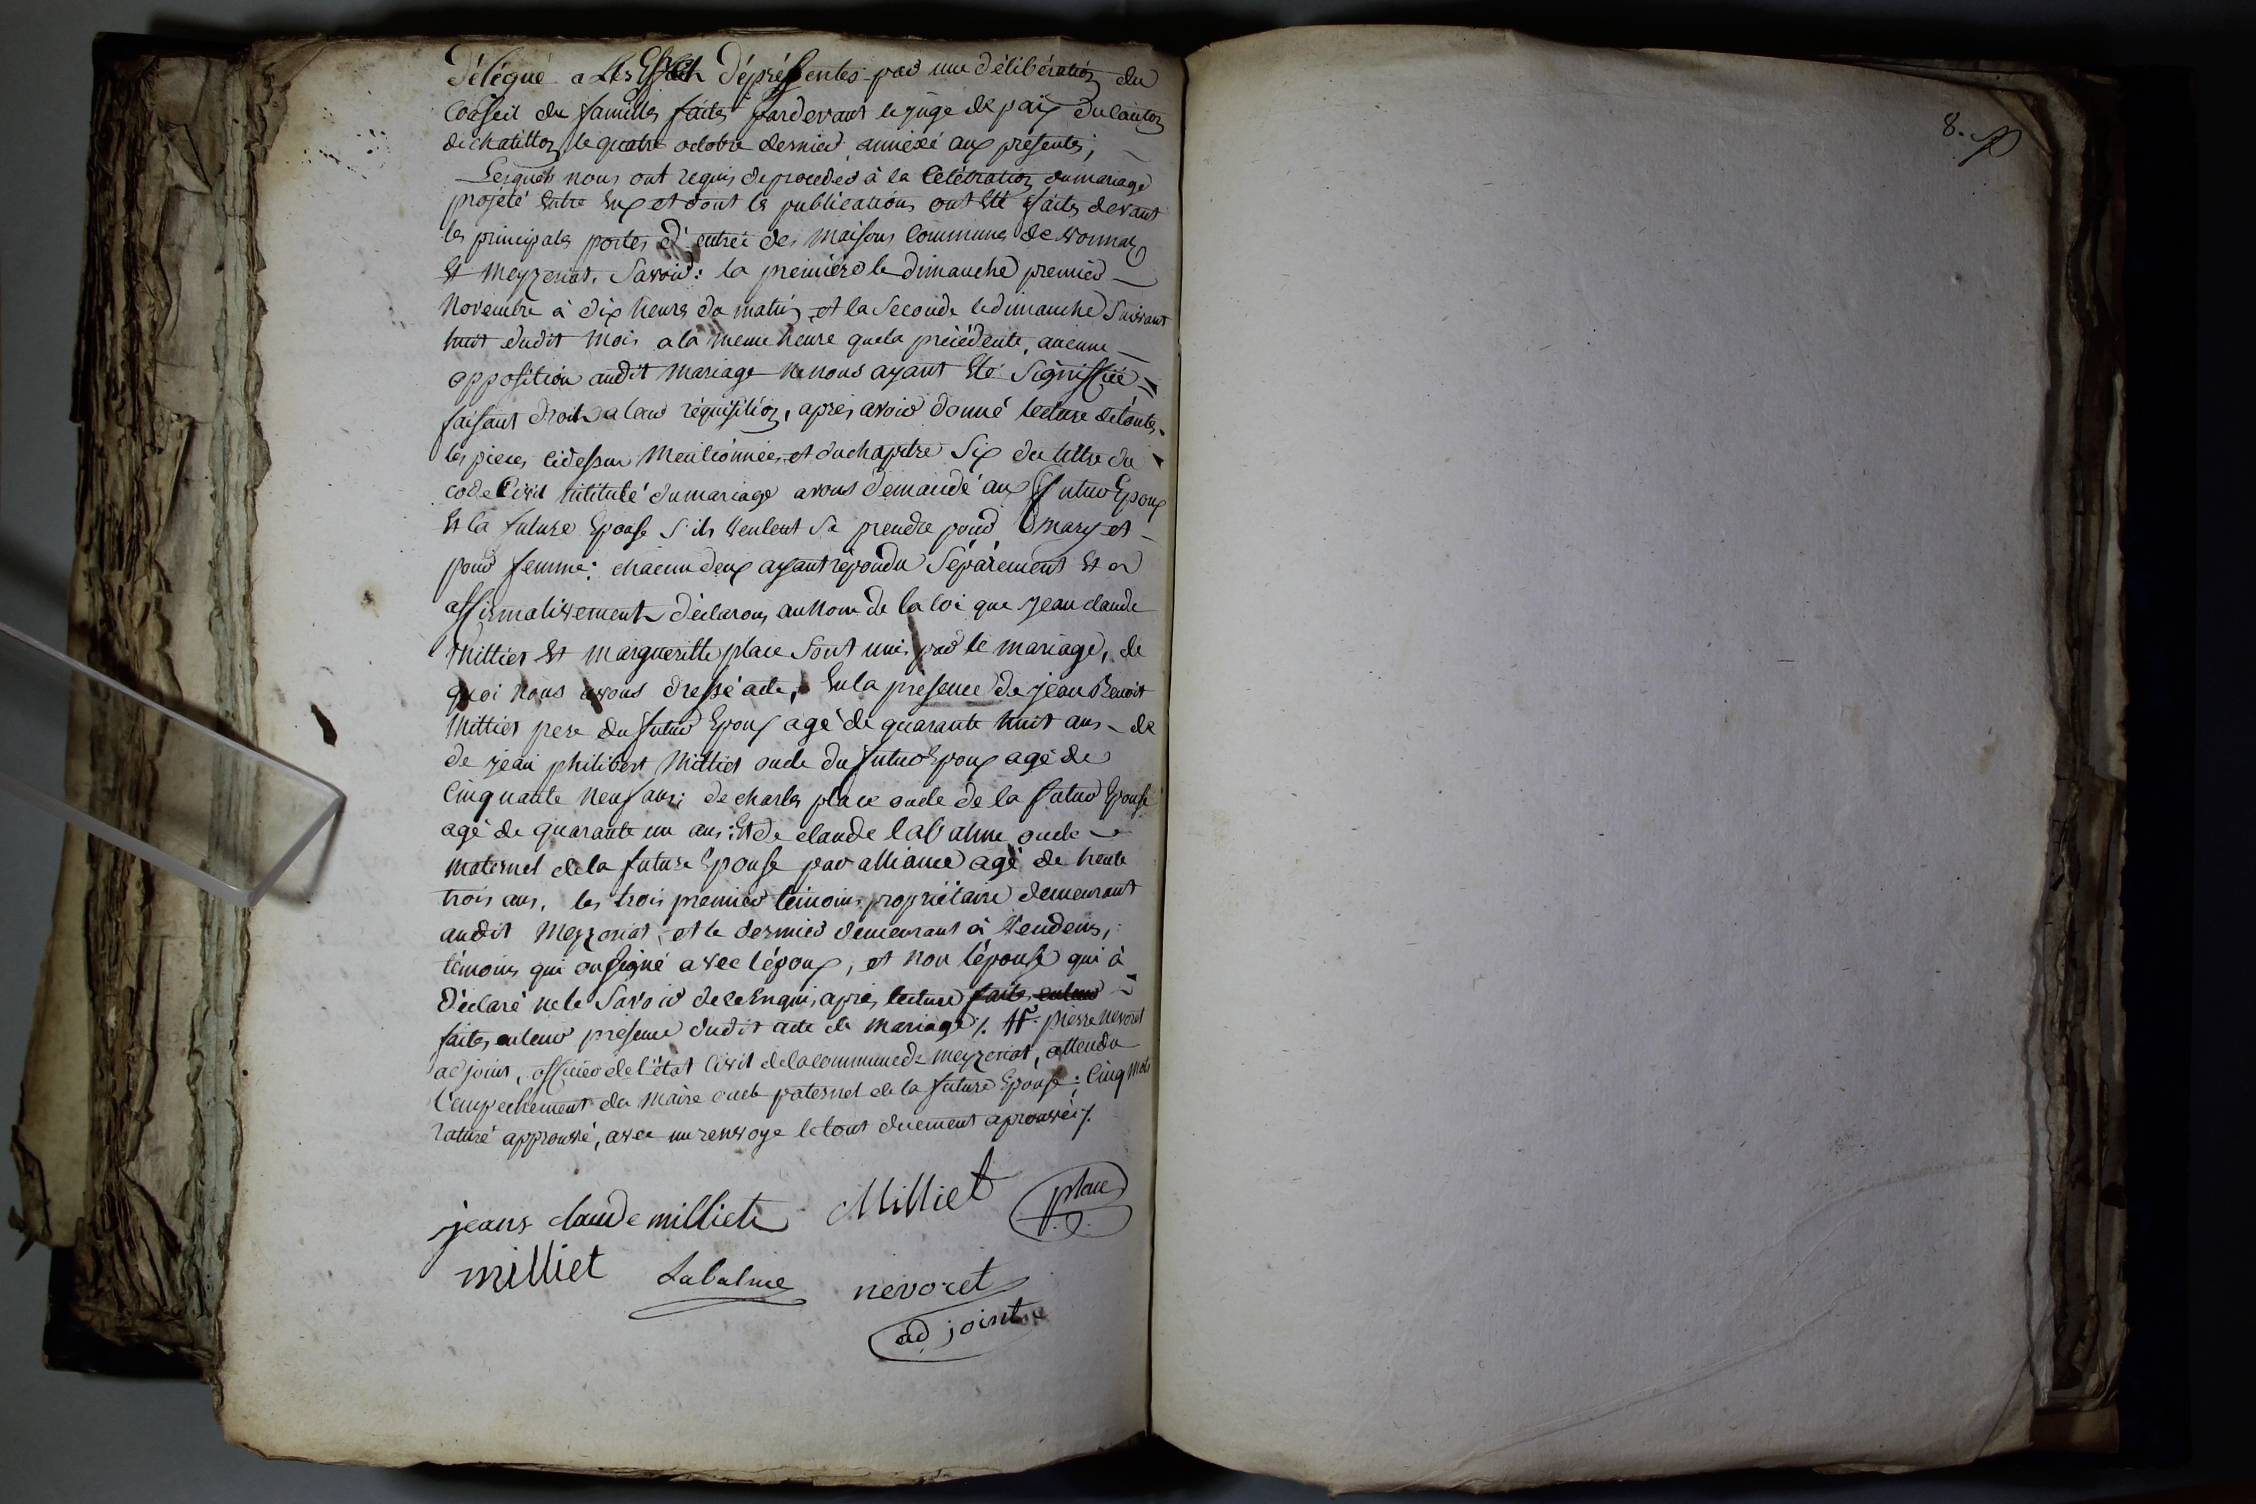 délégué a Les Effet déprésentes par une délibération du
Conseil de famille faites pardevant le juge de paix du Canton
de chatillon le quatre octobre dernier annéxé aux présentes ;
Lesquels nous ont requis de procéder à la Célébration du mariage
projété Entre Eux et dont les publications ont Eté faites devant
les principales portes d'entrée des Maisons Communes de vonnas
Et Mezzeriat. Savoir : la première le dimanche premier
Novembre à dix heures du matin et la Seconde le dimanche Suivant
huit dudit Mois a la même heure que la précédente, aucune
opposition audit Mariage Ne nous ayant Eté Signiffiée,
faisant droit a leur réquisition, après avoir donné lecture de toutes
les pieces Cidessus Mentionnées et du chapitre Six du titre du
code Civil intitulé du mariage avons demandé aux futur Epoux
Et la future Epouse S'ils veulent Se prendre pour mary et
pour femme : chacun deux ayant répondu Séparement Et
affirmativement déclarons au Nom de la loi que jean claude
Milliet Et margueritte place Sont unis par le mariage, de
quoi Nous avons dressé acte, En la présence de jean Benoit
Milliet pere du futur Epoux agé de quarante huit ans de
de jean philibert Milliet oncle du futur Epoux agé de
Cinquante Neuf ans ; de charles place oncle de la futur Epouse
agé de quarante un ans : Et de claude labalme oncle
maternel de la future Epouse par alliance agé de trente
trois ans, les trois premier témoins propriétaire demeurant
audit Mezzeriat, et le dernier demeurant à Vendeins,
témoins qui on signé avec l'époux, et Non l'épouse qui à
déclaré ne le Savoir de ce Enquis, après lecture faites en leur
faites en leur présence dudit acte de Mariage /. pierre nevoret
adjoint, officier de l'état Civil de la commune de mezzeriat, attendu
l'empechement du Maire oncle paternel de la future Epouse ; Cinq Mots
raturé approuvé, avec un renvoye le tout duement aprouvée /.
jeans claude milliet Milliet place
milliet Labalme nevoret
ad joint
8.